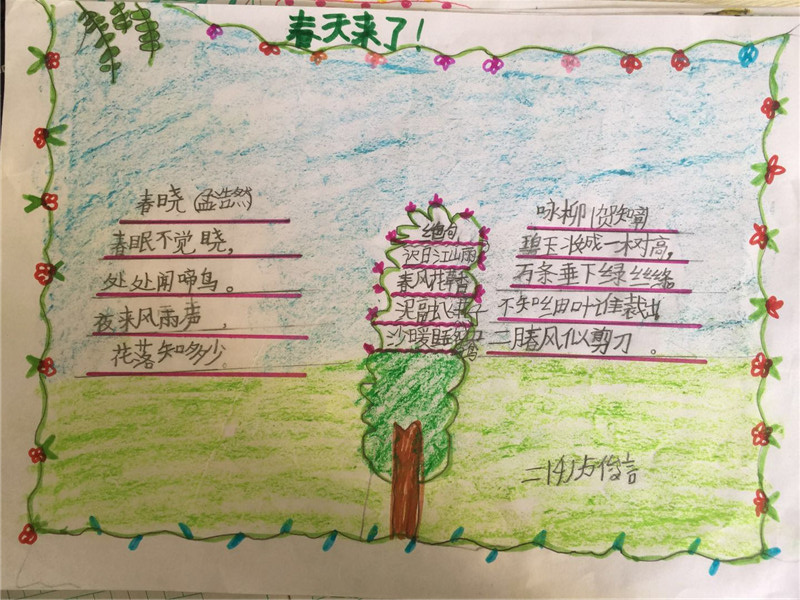 春天来了!
春晓(孟浩然)
春眠不觉晓,
处处闻啼鸟。
夜来风雨声,
花落知多少。
绝句
迟日江山丽
春风花草香
泥融飞燕子
沙暖睡鸳鸯
咏柳(贺知章)
碧玉妆成一树高,
万条垂下绿丝绦。
不知细叶谁裁出,
二月春风似剪刀。
二(4)